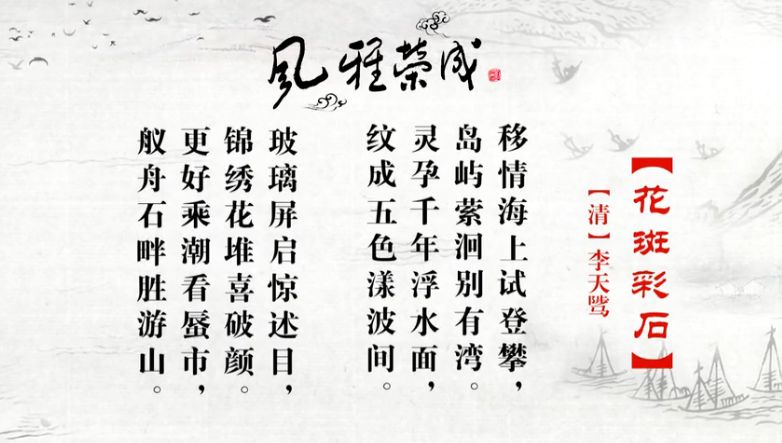 風雅榮成
【花斑彩石】
【清】李天骘
移情海上试登攀，
岛屿萦洄别有湾。
灵孕千年浮水面，
纹成五色漾波间。
玻璃屏启惊述目，
锦绣花堆喜破颜。
更好乘潮看蜃市，
舣舟石畔胜游山。